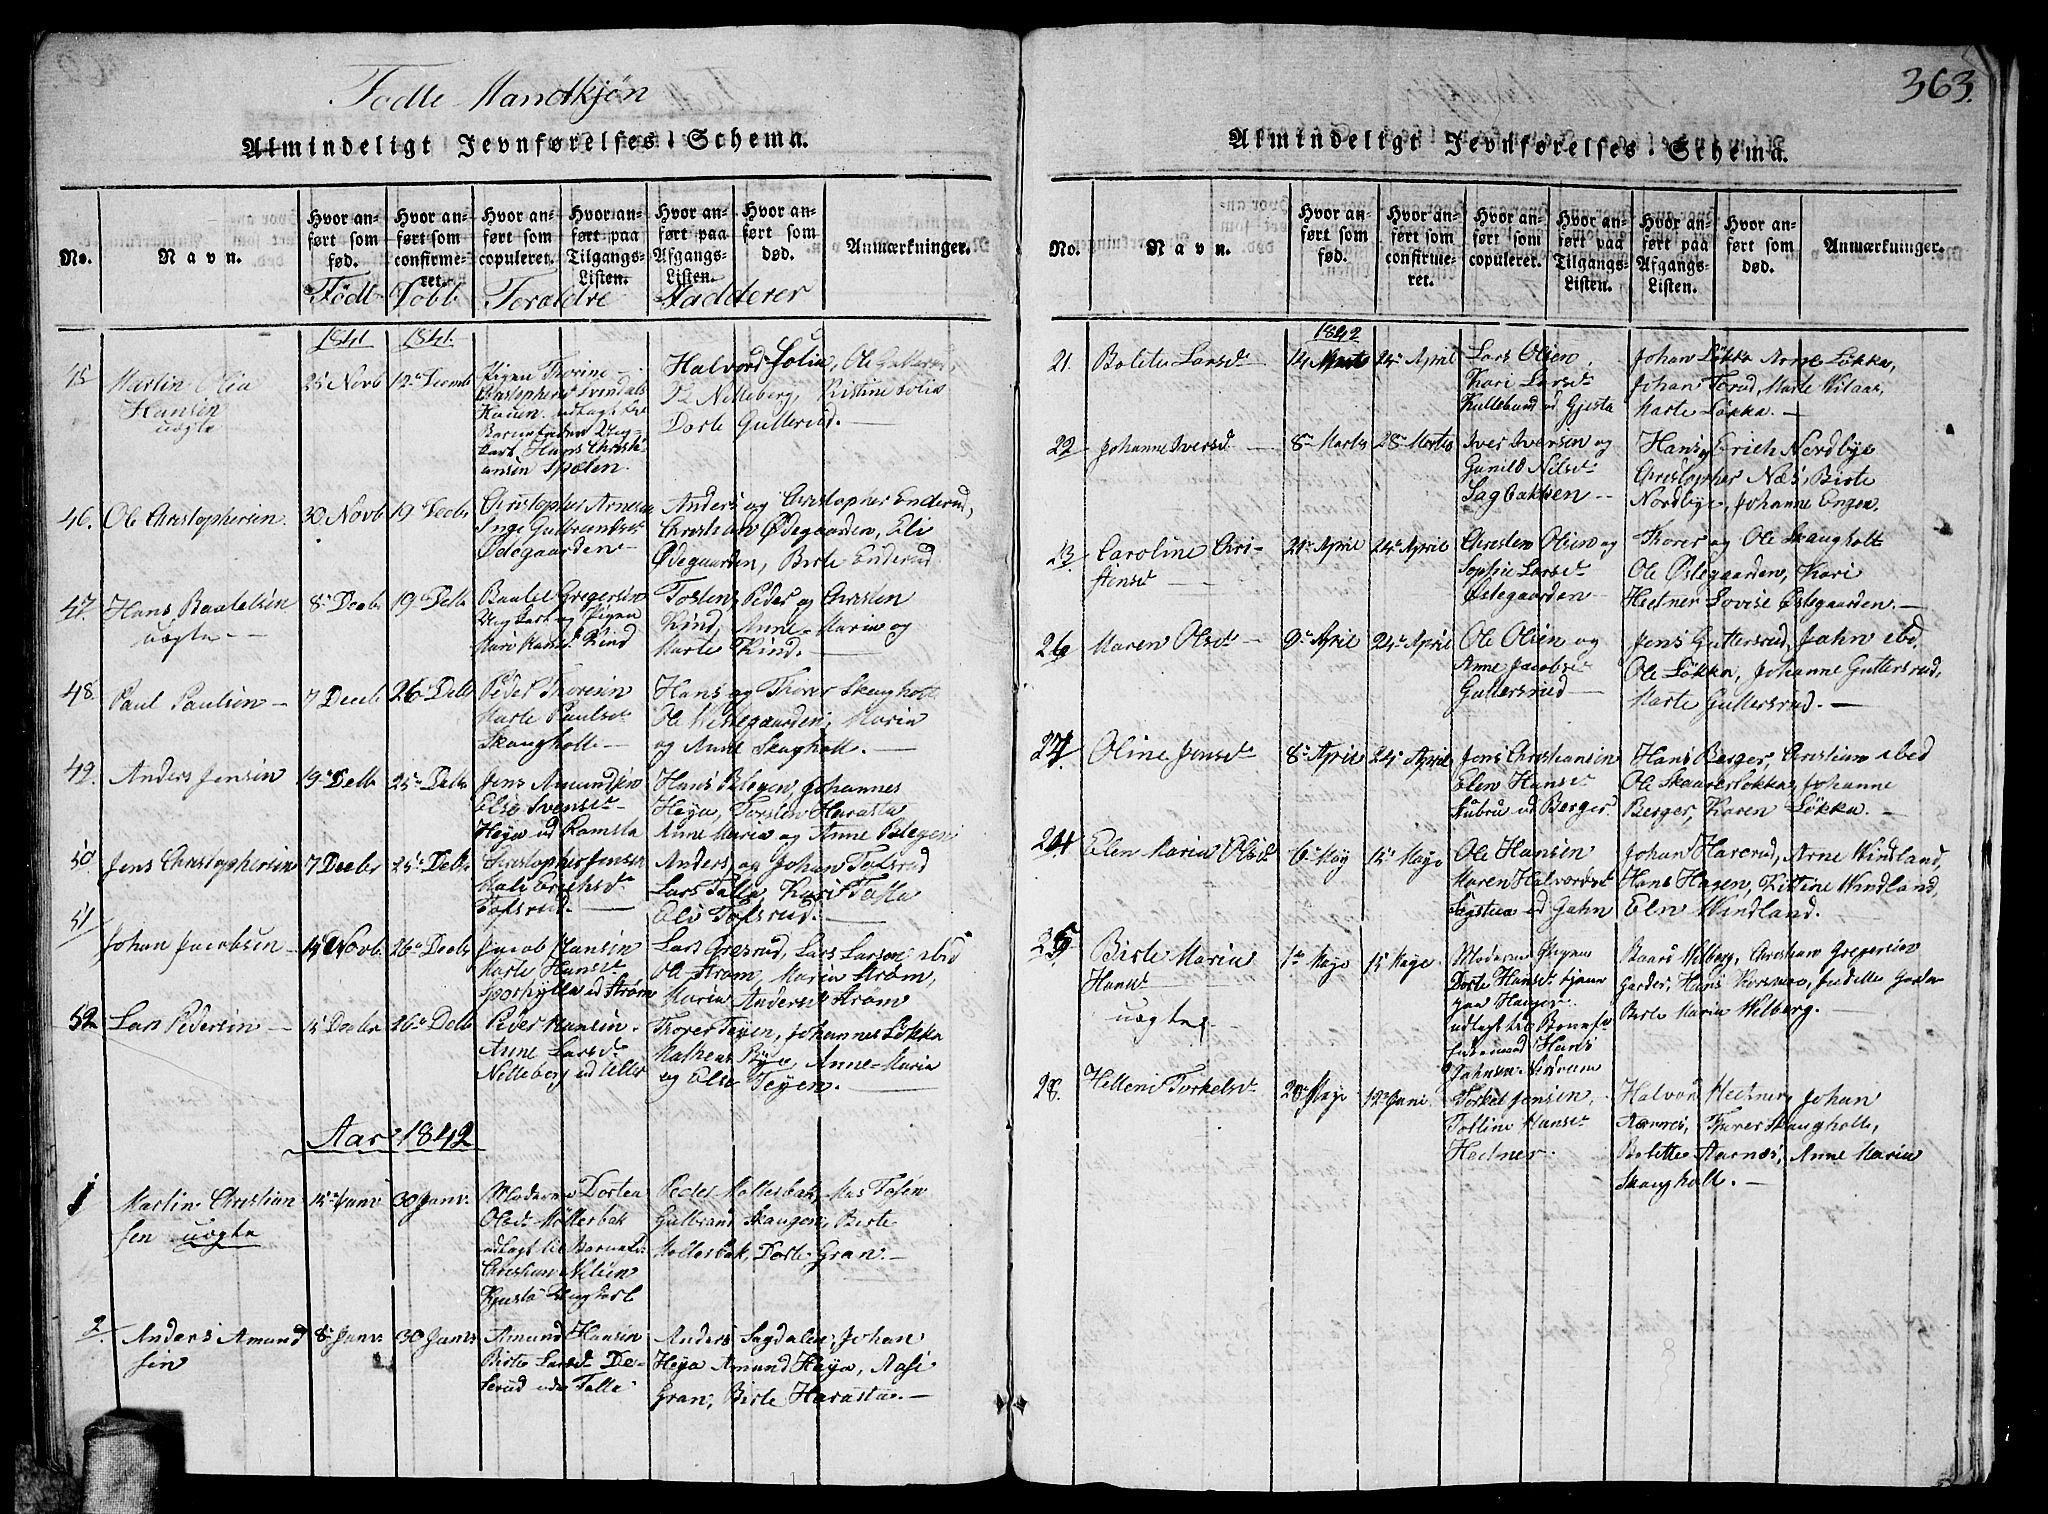 Fødte Mandkjøn
Almindeligt Jevnførelses-Schema.
No.
Navn.
Hvor an-
ført som
fød.
Hvor an-
ført som
confirme-
ret.
Hvor an-
ført som
copuleret.
Hvor an-
ført paa
Tilgangs-
Listen.
Hvor an-
ført paa
Afgangs-
Listen.
Hvor an-
ført som
død.
Anmærkninger.
Født Døbt Forældre Fadderer
1841 1841.
Martin Olia
Hansen
uægte
25 Novb
12te Decmb
Pigen Thorine
Christophers Svendals
Hauen. udlagt til
Barnefader Ung-
karl Hans Christi-
ansen Spølen.
Halvord Solia, Ole Gutterud,
Nitteberg, Kristine Solia
Dorte Gutterud. —
46. Ole Christophersen. 30 Novb 19 Decbr
Christopher Arnesen
Inge Gulbrandsd
Ødegaarden —
Anders og Christopher Enderud,
Christian Ødegaarden, Eli
Ødegaarden, Birte Enderud.
47. Hans Baatelsen 8 Decbr 19 Decbr
uægte. —
Baatel Gregersen
Ungkarl og Pigen
Mari Hansd Kind
Tosten, Peder og Christen
Kind, Anne Maria og
Marte Kind. —
48. Paul Paulsen — 7 Decbr 26 Decbr
Peder Thoresen
Marte Paulsdr
Skaugholt —
Hans og Thorer Skaugholt
Ole Westegaarden, Maria
og Anne Skaugholt. —
49. Anders Jensen 19 Decbr 25 Decbr
Jens Amundsen
Else Svensdr
Heya ud Ramsta
Hans Stegen, Johannes
Heya, Torsten Harasta
Anne Maria og Anne Stegen
50. Jens Christophersen 7 Decbr 25 Decbr
Christopher Jensen
Mali Erichsdr
Tofsrud. —
Anders og Johan Tofsrud
Lars Talla, Kari Tofla
Oli Tofsrud. —
51
Johan Jacobsen — 14 Novb. 26 Decbr
Jacob Hansen
Marte Hansdr
Sporhylla ud Strøm
Lars Gresrud, Lars Larsen ibid
Ole Strøm, Maria Strøm,
Maria Andersd Strøm
52 Lars Pedersen — 15 Decbr 26 Decbr
Peder Hansen.
Anne Larsdr
Nitteberg ud Eller
Thorer Teyen, Johannes Løkka
Matheas Bye, Anne-Maria
og Else Teyen. —
Aar 1842
1
Martin Christian
sen uægte
15 Janv
30 Janv.
Moderen Dortea
Olsdr Møllerbak
udlagt til Barnefd.
Christian Nilsen
Kjusta Ungkarl
Peder Møllerbak, Mas Tosen
Gulbrand Skaugen, Birte
Møllerbak, Dorte Gran. —
2. Anders Amund
sen
8 Janv. 30 Janv.
Amund Hansen
Birte Larsdr De-
serud Talla
Anders Sagdalen, Johan
Heya Amund Heya, Aasi
Gran, Birte Harasta. —
363.
Almindeligt Jevnførelses-Schema.
No.
Navn.
Hvor an-
ført som
fød.
Hvor an-
ført som
confirme-
ret.
Hvor an-
ført som
copuleret.
Hvor an-
ført paa
Tilgangs-
Listen.
Hvor an-
ført paa
Afgangs-
Listen.
Hvor an-
ført som
død.
Anmærkninger.
1842
21. Bolite Larsdr 14 Marts 24 April
Lars Olsen
Kari Larsdr
Kullebund ud Gjesta
Johan Løkka Arne Løkka,
Johan Torud, Marte Wilaas,
Marte Løkka. —
22 Johanne Iversd — 8 Marts 28 Marts
Iver Iversen og
Gunild Nilsdr
Sagbakken —
Hans Erich Nordbye
Christopher Næs, Birte
Nordbye, Johanne Engen.
23 Caroline Chri-
stensdr —
21 April 24 April
Christen Olsen og
Sophie Larsdr
Østegaarden —
Thorer og Ole Skaugholt
Ole Østegaarden, Kari
Hedner Lovise Østegaarden. —
26 Maren Olsdr 9 April 24 April
Ole Olsen og
Anne Jacobsdr
Guttersrud —
Jens Guttersrud, John ibd,
Ole Løkka, Johanne Guttersrud,
Marte Guttersrud. —
27. Oline Jensdr 8 April 24 April
Jens Christiansen
Elen Hansdr
Stubru ud Berger.
Hans Berger, Christian ibid
Ole Skaarerløkka, Johanne
Berger, Karen Løkka. —
24 Elen Maria Olsdr 6 May 15 Mayo
Ole Hansen
Maren Halvordsdr
Sigstua ud Jahn
Johan Harerud, Arne Windland,
Hans Hagen, Kittine Windland,
Elen Windland. —
25 Birte Maria
Hansdr
uægte. —
1te Mayo 15 Mayo
Moderen Pigen
Dorte Hansdr tjener
paa Haugen
udlagt til Barnefa
Hans
Johnsen
Baard Wilberg, Christian Gregersen
Garder, Hans Korsmoe,
Birte Maria Wilberg. —
28. Helleni Torkelsdr 20 Mayo 12 Juni.
Torkel Jensen
Tolline Hansdr
Hedner.
Halvor Hedner, Johan
Aarnes, Thorer Skaugholt,
Bolette Aarnes, Anne Maria
Skaugholt. —